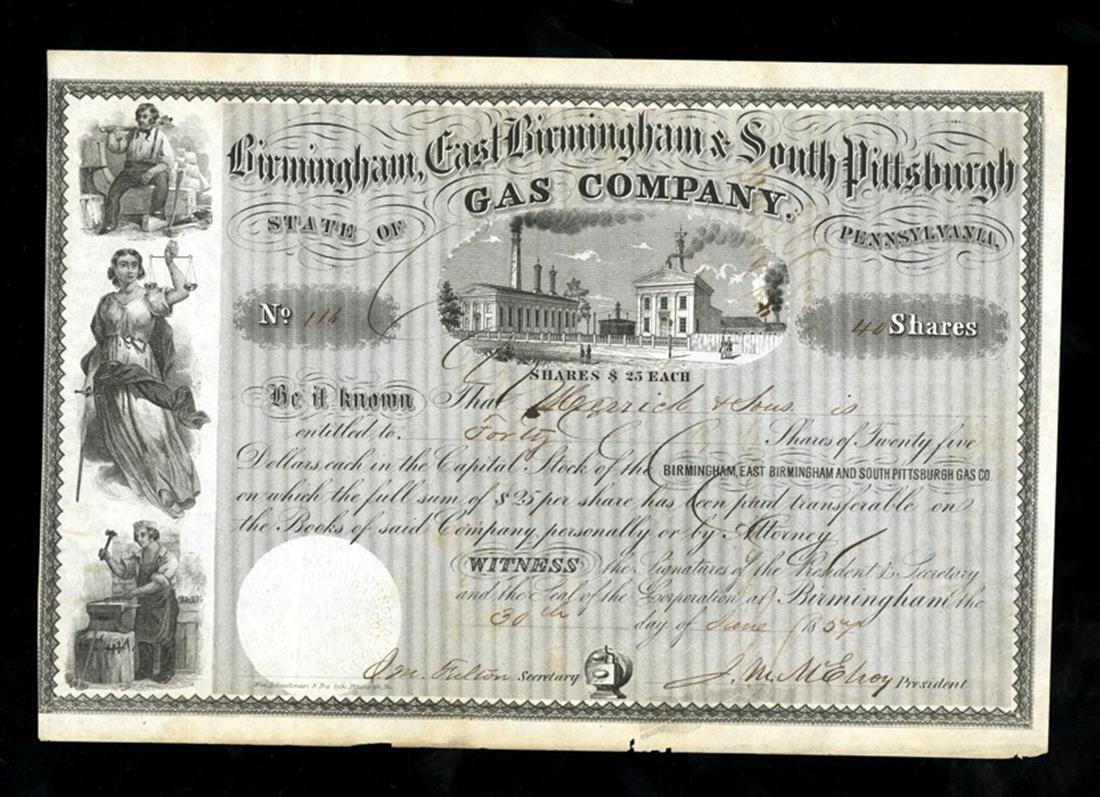 Birmingham, East Birmingham & South Pittsburgh
GAS COMPANY.
STATE OF PENNSYLVANIA,
No 116
40 Shares
SHARES $ 25 EACH
Be it known That Merrick & Sons. is
entitled to Forty Shares of Twenty five
Dollars each in the Capital Stock of the BIRMINGHAM, EAST BIRMINGHAM AND SOUTH PITTSBURGH GAS CO.
on which the full sum of $25 per share has been paid transferable on
the Books of said Company, personally or by Attorney
WITNESS the Signatures of the President & Secretary
and the Seal of the Corporation at Birmingham the
30th day of June 1857
J. M. Fulton Secretary J. M. McElroy President